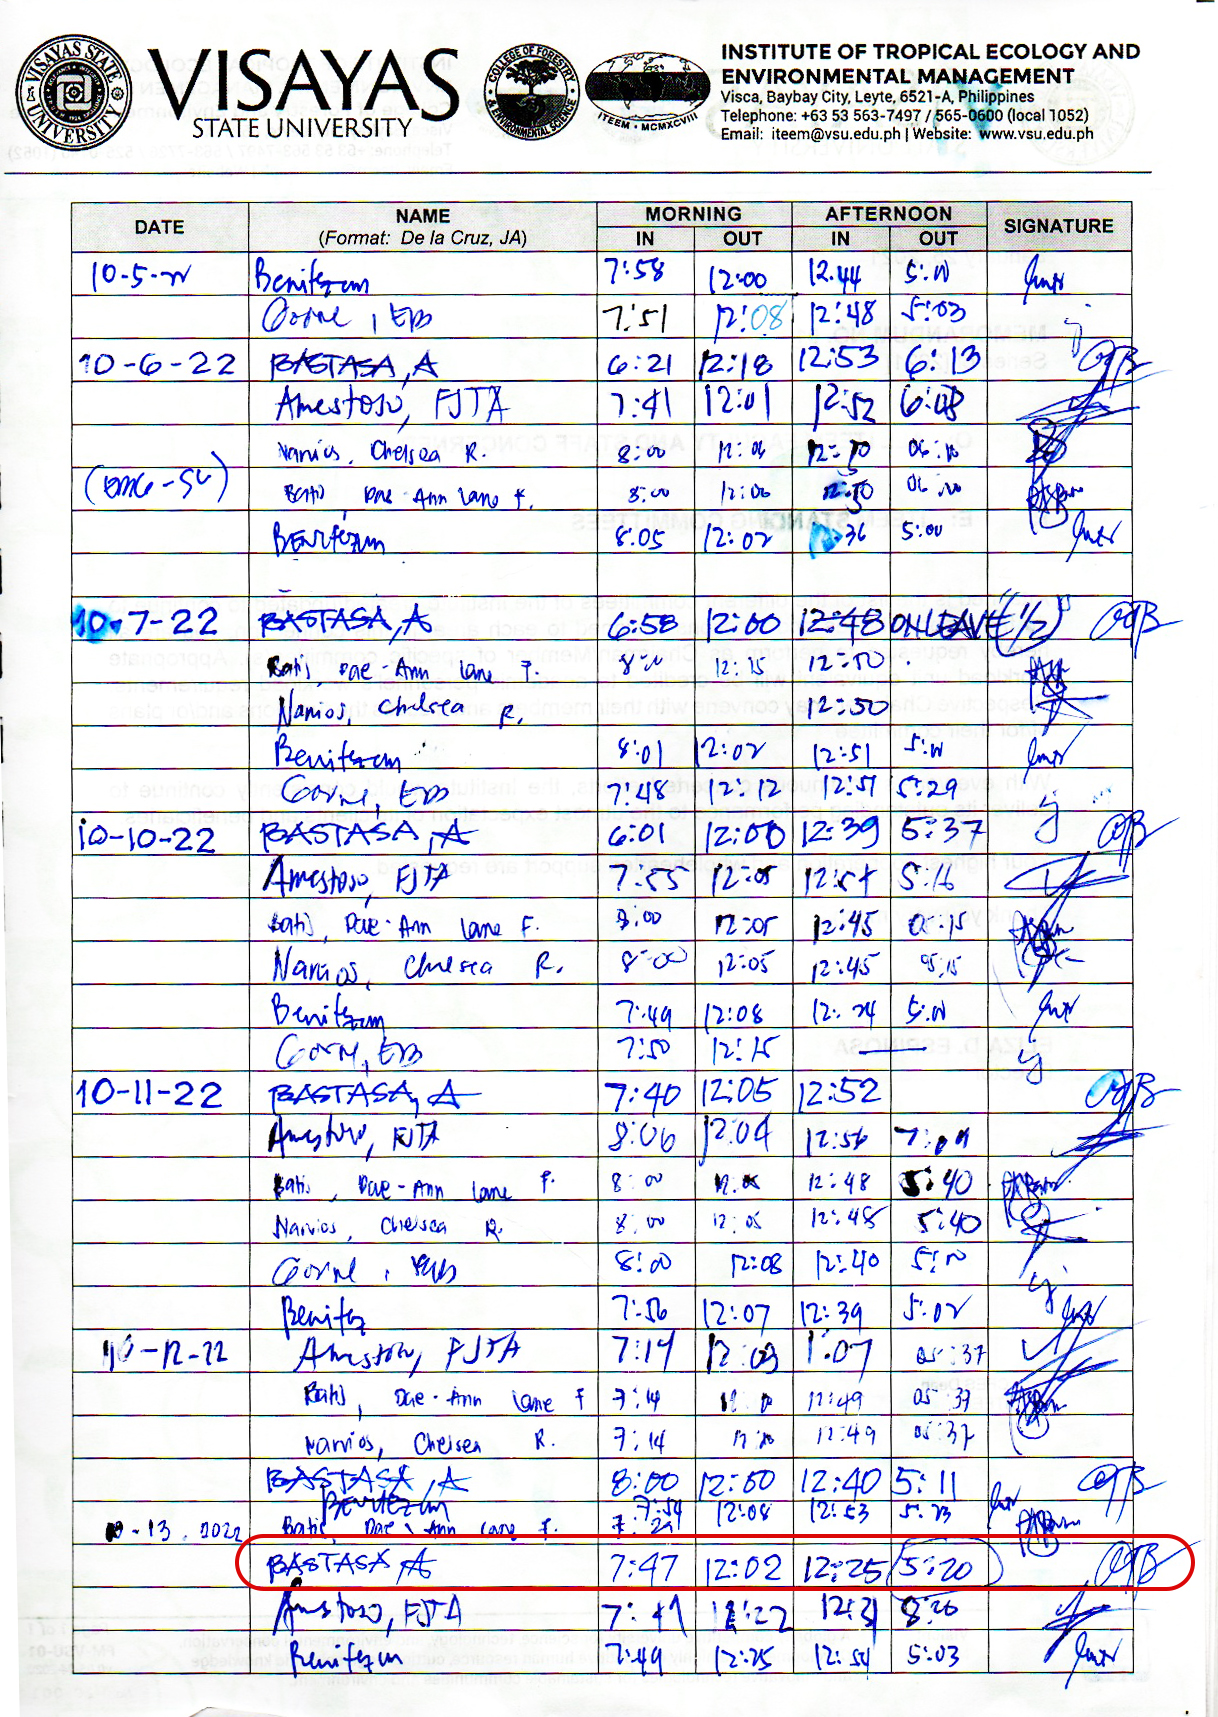 VISAYAS STATE UNIVERSITY
VISAYAS
STATE UNIVERSITY
COLLEGE OF FORESTRY & ENVIRONMENTAL SCIENCE
ITEEM • MCMXCVIII
INSTITUTE OF TROPICAL ECOLOGY AND
ENVIRONMENTAL MANAGEMENT
Visca, Baybay City, Leyte, 6521-A, Philippines
Telephone: +63 53 563-7497 / 565-0600 (local 1052)
Email: iteem@vsu.edu.ph | Website: www.vsu.edu.ph
DATE NAME MORNING AFTERNOON SIGNATURE
(Format: De la Cruz, JA) IN OUT IN OUT
10-5-22 Benitezm 7:58 12:00 12:44 5:00
Gorne, EDB 7:51 12:08 12:48 5:03
10-6-22 BASTASA, A 6:21 12:18 12:53 6:13
Amestoso, FJTA 7:41 12:01 12:52 6:08
Narios, Chelsea R. 8:00 12:06 12:50 06:10
Batis, Dae-Ann Lane F. 8:00 12:06 12:50
Benitezm 8:05 12:02 5:00
10-7-22 BASTASA, A 6:58 12:00 12:48 ON LEAVE (1/2)
Batis, Dae-Ann Lane F. 12:15 12:50
Narios, Chelsea R. 12:50
Benitezm 8:01 12:02 12:51 5:00
Gorne, EDB 7:48 12:12 12:51 5:29
10-10-22 BASTASA, A 6:01 12:00 12:39 5:37
Amestoso, FJTA 7:55 12:05 5:16
Batis, Dae-Ann Lane F. 8:00 12:05 12:45 05:15
Narios, Chelsea R. 8:00 12:05 12:45 05:15
Benitezm 7:49 12:08 12:24 5:00
Gorne, EDB 7:50 12:15
10-11-22 BASTASA, A 7:40 12:05 12:52
Amestoso, FJTA 8:06 12:04 12:56
Batis, Dae-Ann Lane F. 8:00 12:48 5:40
Narios, Chelsea R. 8:00 12:05 12:48 5:40
Gorne, EDB 8:00 12:08 12:40 5:10
Benitez 7:56 12:07 12:39 5:02
10-12-22 Amestoso, FJTA 7:14 12:03 1:07 05:37
Batis, Dae-Ann Lane F 7:14 12:49 05:37
Narios, Chelsea R. 7:14 12:49 05:37
BASTASA, A 8:00 12:00 12:40 5:11
Benitezm 7:54 12:08 12:53 5:23
10-13-2022 Batis, Dae-Ann Lane F. 7:29
BASTASA, A 7:47 12:02 12:25 5:20
Amestoso, FJTA 7:49 12:22 12:31
Benitezm 7:49 12:25 12:54 5:03